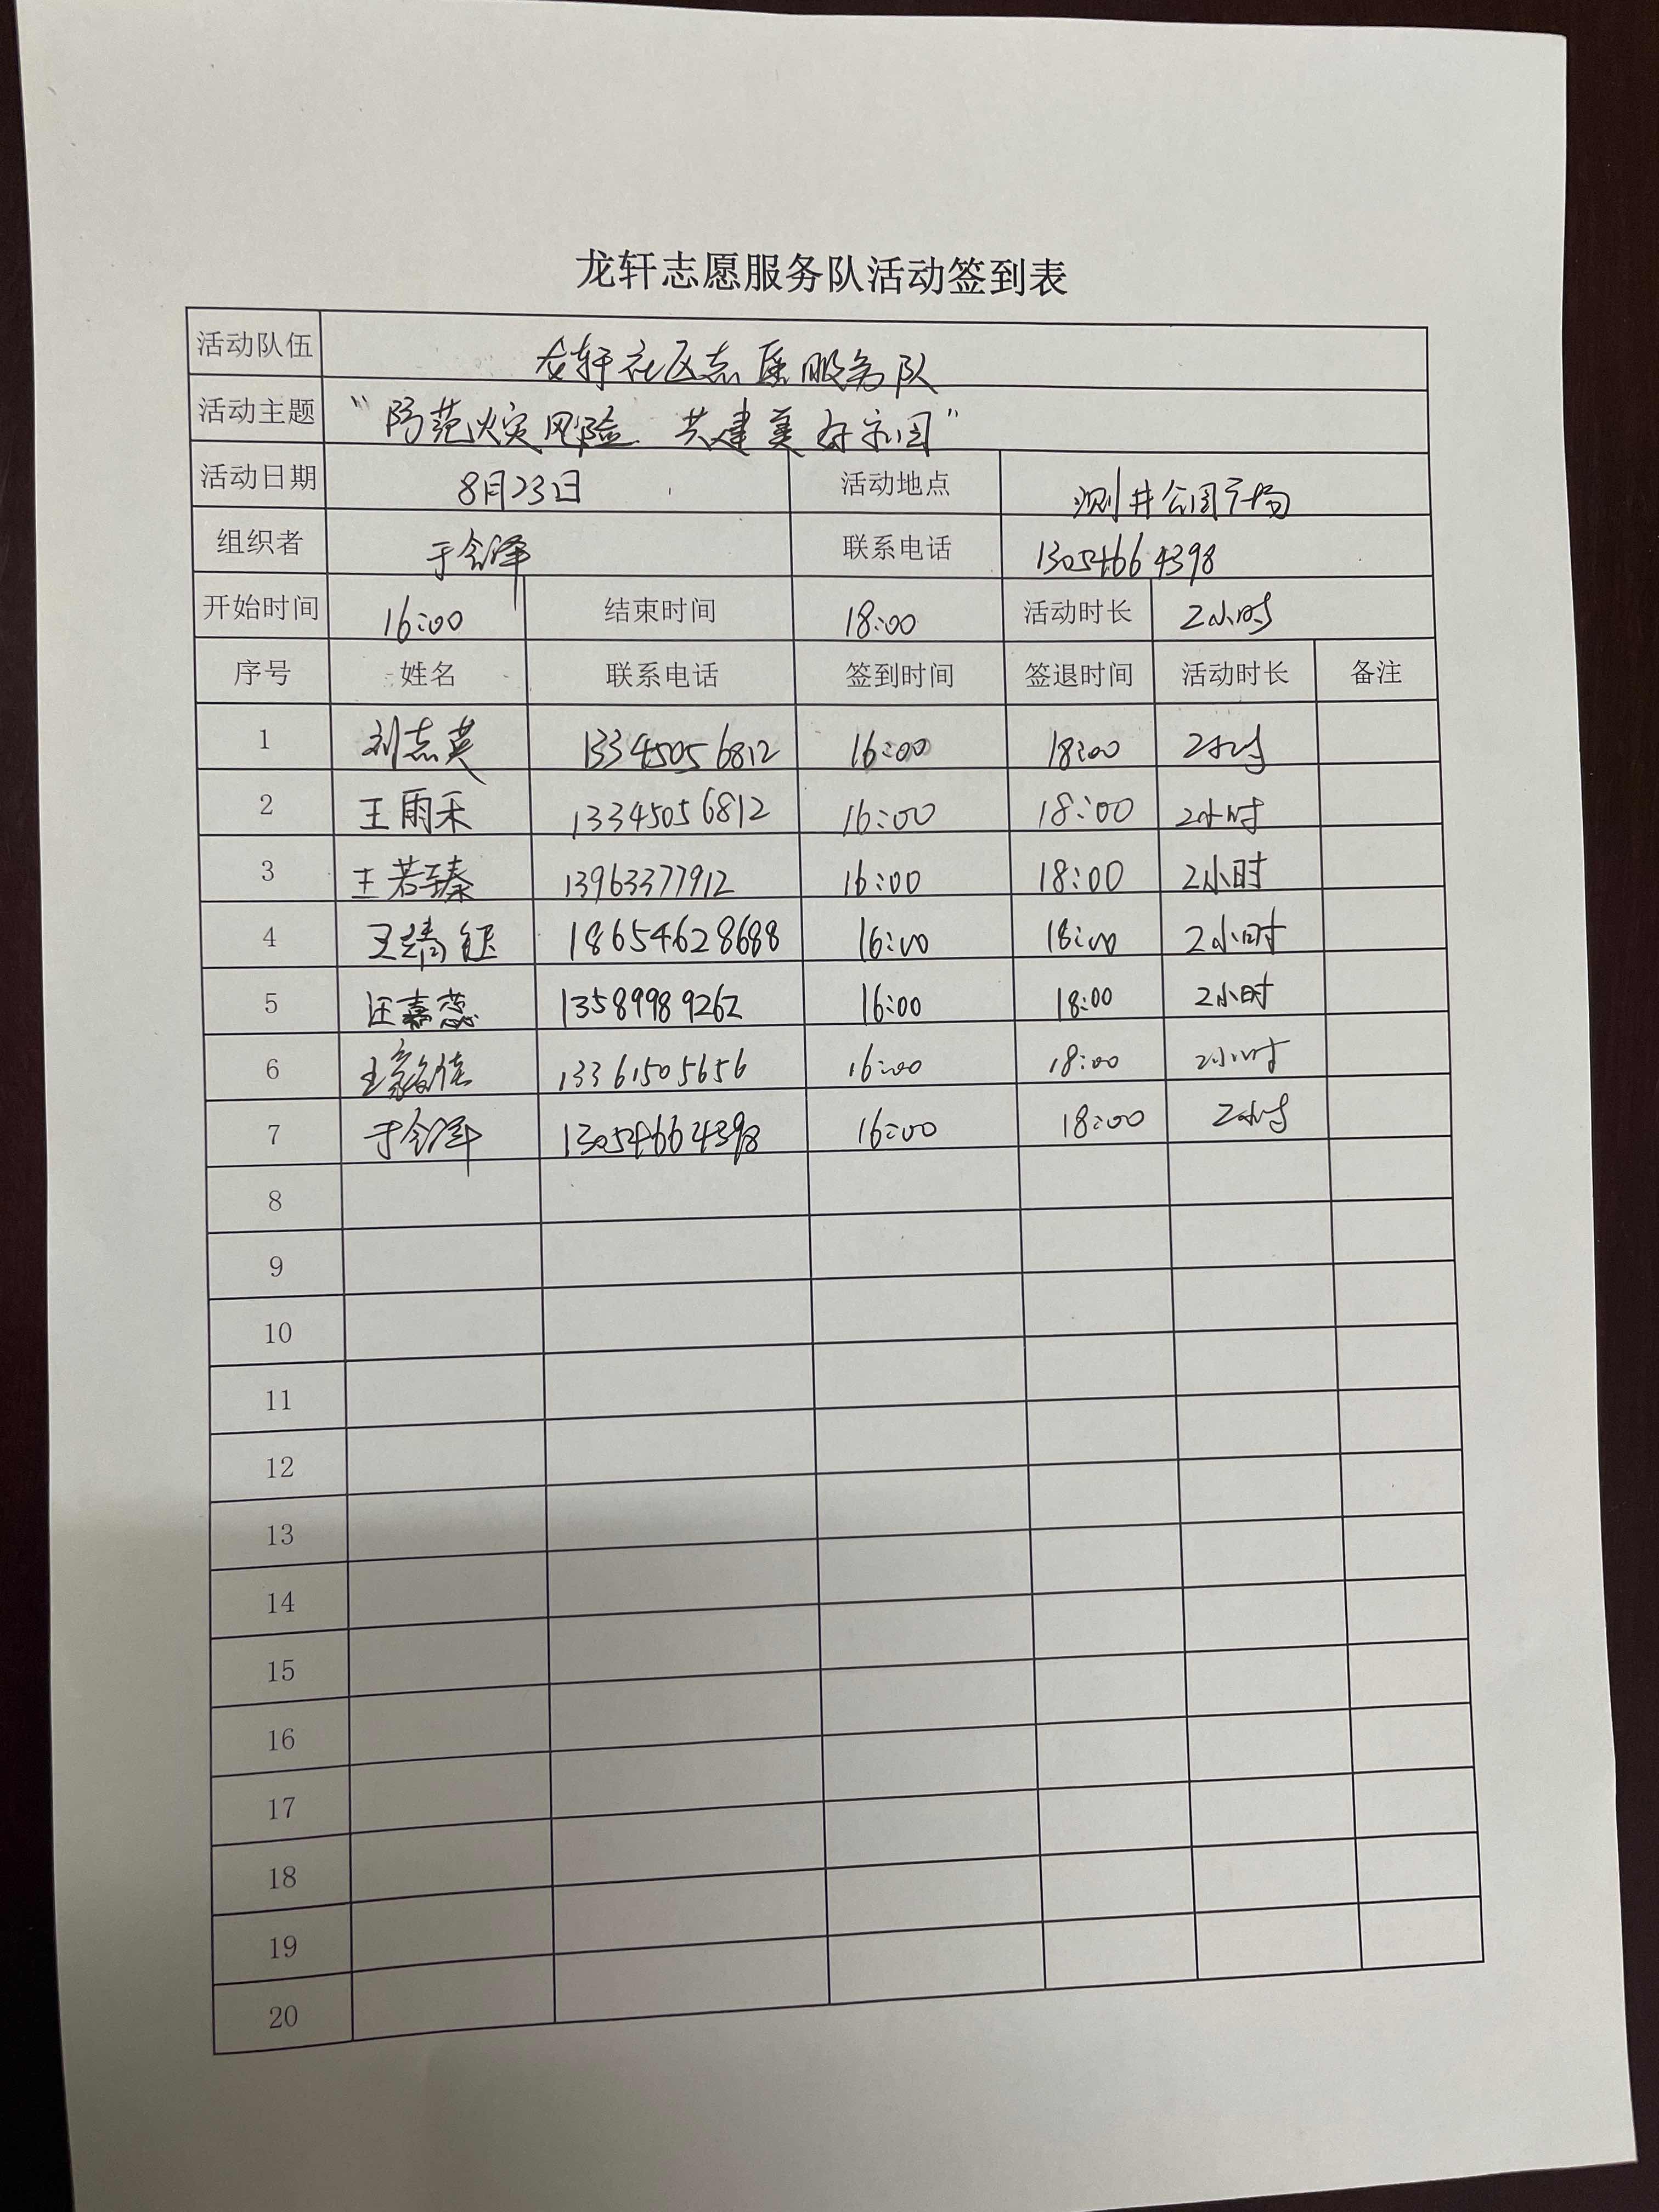 龙轩志愿服务队活动签到表
活动队伍 龙轩社区志愿服务队
活动主题 "防范火灾风险 共建美好家园"
活动日期 8月23日 活动地点 测井公园广场
组织者 于会泽 联系电话 13054664398
开始时间 16:00 结束时间 18:00 活动时长 2小时
序号 姓名 联系电话 签到时间 签退时间 活动时长 备注
1 刘志英 13345056812 16:00 18:00 2小时
2 王雨禾 13345056812 16:00 18:00 2小时
3 王若臻 13963377912 16:00 18:00 2小时
4 王靖钰 18654628688 16:00 18:00 2小时
5 汪嘉蕊 13589989262 16:00 18:00 2小时
6 王 13361505656 16:00 18:00 2小时
7 于会泽 13054664398 16:00 18:00 2小时
8
9
10
11
12
13
14
15
16
17
18
19
20